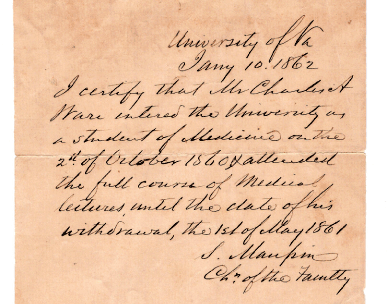 University of Va
Jany 10. 1862
I certify that Mr Charles A
Ware entered the University as
a student of Medicine on the
2nd of October 1860 & attended
the full course of Medical
lectures until the date of his
withdrawal, the 1st of May 1861
S. Maupin
Chn of the Faculty